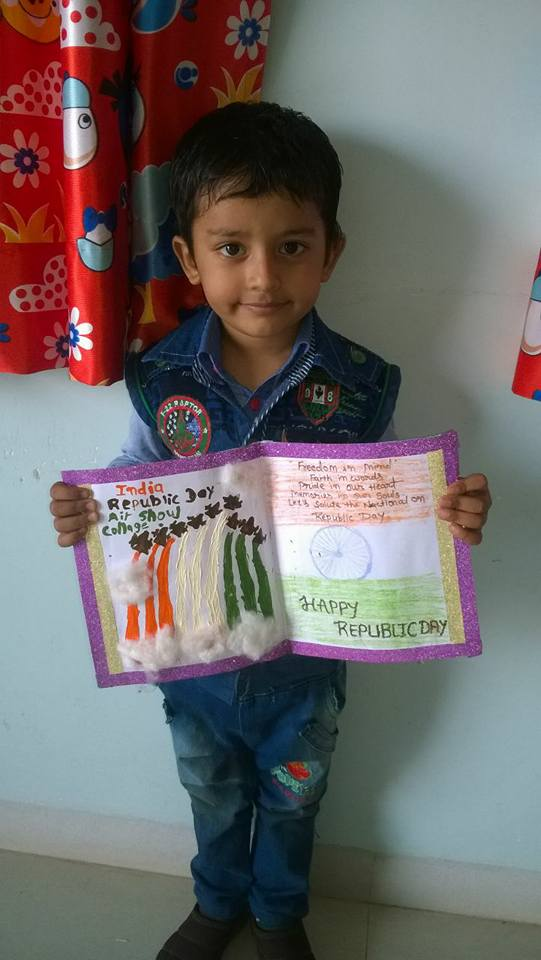 India
Republic Day
Air Show
Collage
Freedom in mind
Faith in words
Pride in our Heart
Memories in our Souls
Let's Salute the Nactional on
Republic Day
HAPPY
REPUBLIC DAY
F-22 RAPTOR
98